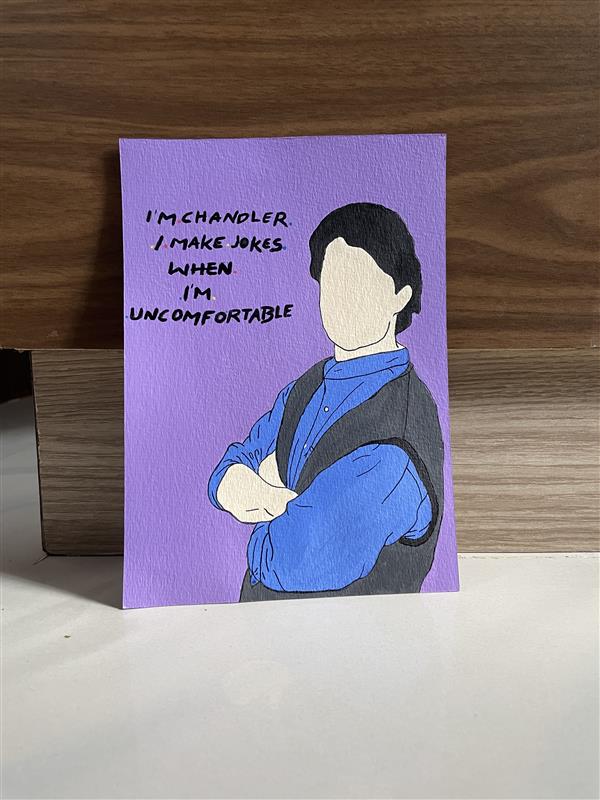 I'M CHANDLER.
I MAKE JOKES
WHEN
I'M
UNCOMFORTABLE